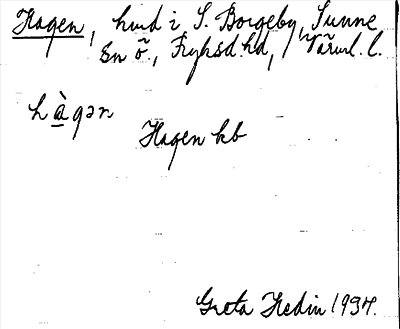 Hagen, hmd i S. Borgeby, Sunne
sn ö., Fryksd. hd, Värml. l.
hàgən
Hagen kb
Greta Hedin 1934.